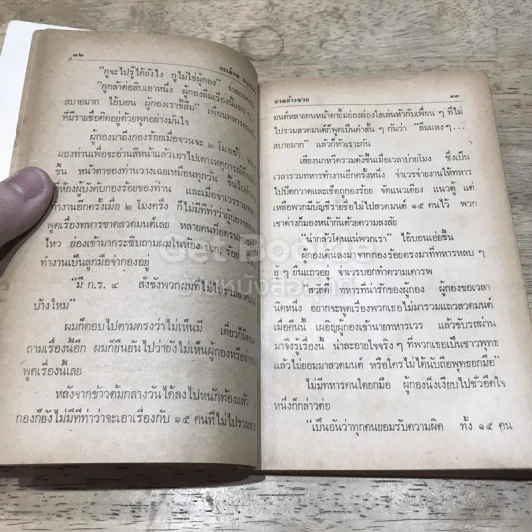 ๒๒
"กูจะไปรู้ได้ยังไง กูไม่ใช่ผู้กอง"
"กูกล้าต่อสิบเอาหนึ่ง ผู้กองลืมเรื่องนี้แหง
สบายมาก ไอ้บอน ผู้กองเราขี้ลืม" เพื่อนทหาร
ที่มีรายชื่อติดอยู่ด้วยพูดอย่างมั่นใจ
ผู้กองมาถึงกองร้อยเมื่อจวนจะ ๒ โมงเช้า
มองท่านเพื่อจะอ่านสีหน้าแล้วเอาไปเดาเหตุการณ์
ขึ้น หน้าตาของท่านวางเฉยเหมือนทุกวัน
ห้องผู้บังคับกองร้อยของท่าน และเมื่อจ่าเวร
ทำงานอีกครั้งเมื่อ ๒ โมงครึ่ง ก็ไม่มีทีท่าว่าผู้กอง
พูดเรื่องทหารขาดสวดมนต์เลย หลายคน
ไหว ย่องเข้ามากระซิบถามผมในห้อง บก.ร้อย
ทำงานเป็นลูกมือจ่ากองอยู่
"มี ก.ร. ๔ สงขังพวกผมที่ไม่ไปรวมสวด
บ้างไหม"
ผมก็ตอบไปตามตรงว่าไม่เห็นมี เดี๋ยวก็มีคน
ถามเรื่องนี้อีก ผมก็ยืนยันไปว่ายังไม่เห็นผู้กองหรือจ่า
พูดเรื่องนี้เลย
หลังจากข้าวต้มกลางวันได้ลงไปหนักท้องแล้ว
กองก็ยังไม่มีทีท่าว่าจะเอาเรื่องกับ ๑๕ คนที่ไม่ไปรวม
๒๓
มนต์หลายคนหน้าคล้ำมองผ่องใสเล่นหัวกับเพื่อน ๆ ที่ไม่
ไปรวมสวดมนต์ก็พูดเป็นคำสั้น ๆ กันว่า "ลืมแหง ๆ...
สบายมาก" แล้วก็หัวเราะกัน
เสียงนกหวีดรวมดังขึ้นเมื่อเวลาบ่ายโมง ซึ่งเป็น
เวลารวมทหารทำงานอีกครั้งหนึ่ง จ่าเวรจ่ายงานให้ทหาร
ไปปัดกวาดและเช็ดถูกองร้อย จัดแนวเตียง แนวตู้ แต่
เหลือพวกมีบัญชีรายชื่อไม่ไปสวดมนต์ ๑๕ คนไว้ พวก
เราต่างก็มองหน้ากันด้วยความสงสัย
"น่ากลัวโดนแน่พวกเรา" ไอ้บอนเอ่ยขึ้น
ผู้กองเดินลงมาจากกองร้อยตรงมาที่ทหารหลบ ๆ
อ ๆ ยืนแถวอยู่ จ่าเวรบอกทำความเคารพ
"สวัสดี ทหารที่น่ารักของผู้กอง ผู้กองขอเวลา
นิดหนึ่ง อยากจะพูดเรื่องพวกเธอไม่มารวมแถวสวดมนต์
เมื่อคืนนี้ เผอิญผู้กองเข้านายทหารเวร แล้วขับรถผ่าน
มาจึงรู้เรื่องนี้ น่าละอายใจจริง ๆ ที่พวกเธอเป็นชาวพุทธ
แล้วไม่ยอมมาสวดมนต์ หรือใครไม่ได้นับถือพุทธยกมือ"
ไม่มีทหารคนใดยกมือ ผู้กองนิ่งเงียบไปชั่วอึดใจ
หนึ่งก็กล่าวต่อ
"เป็นอันว่าทุกคนยอมรับความผิด ทั้ง ๑๕ คน